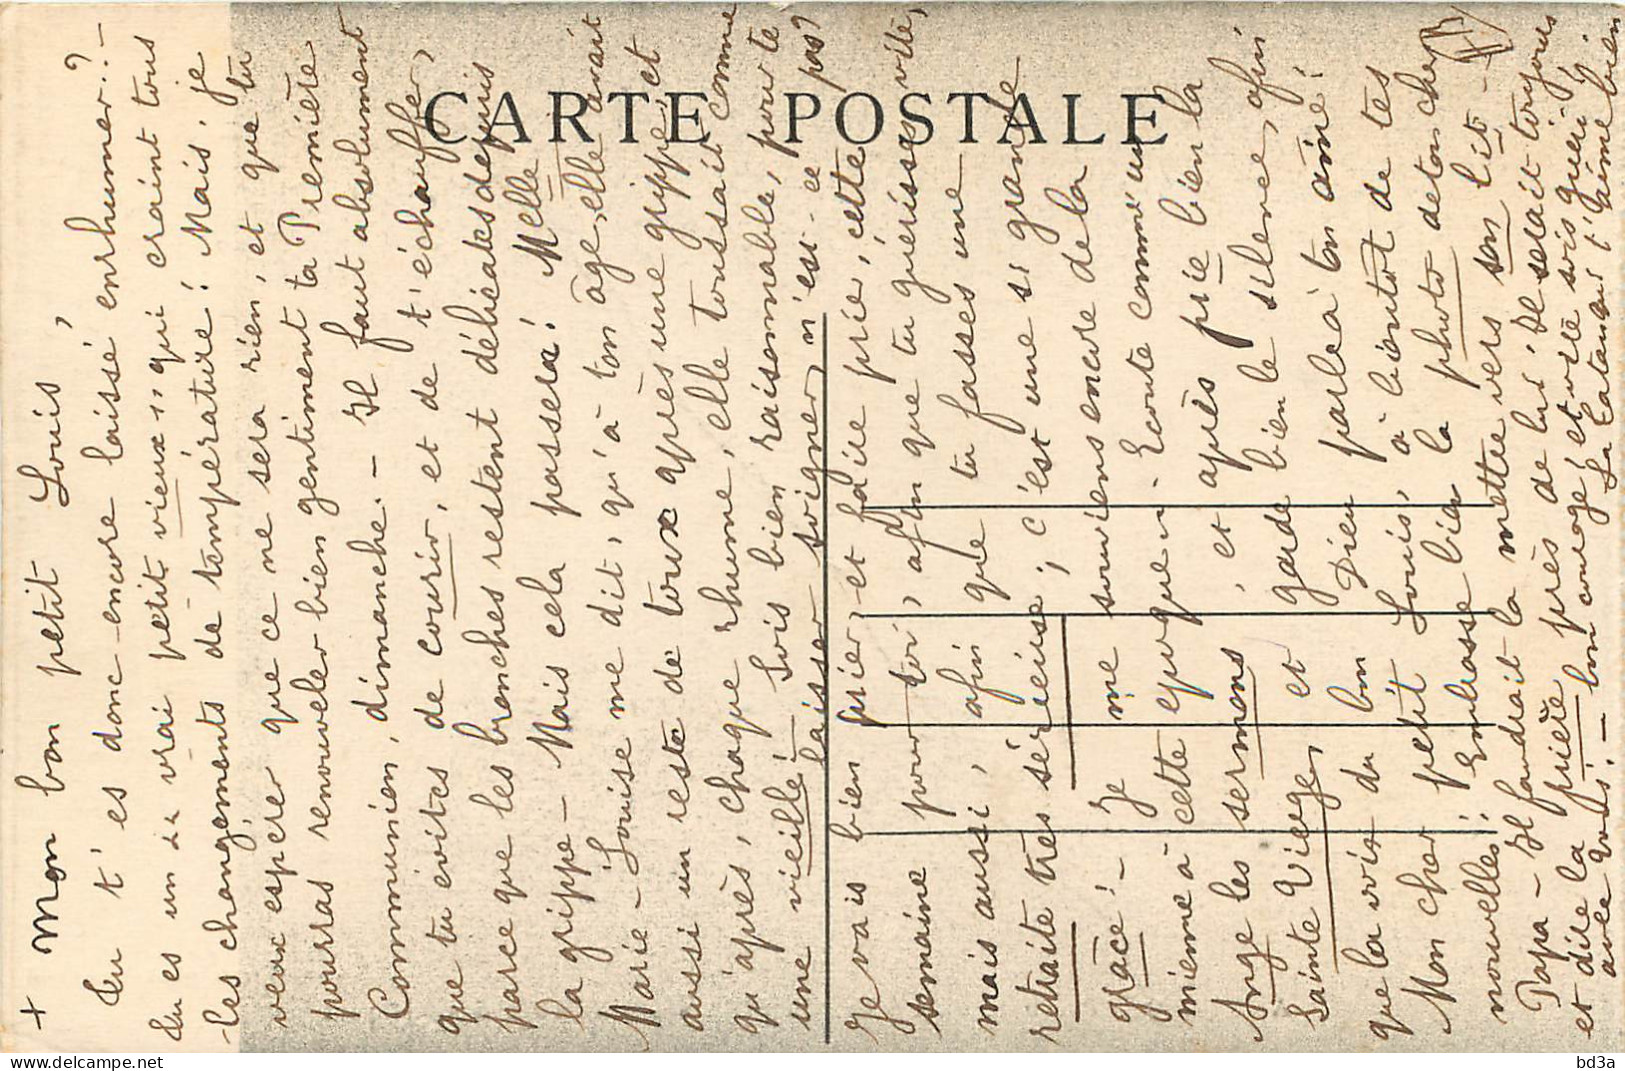 CARTE POSTALE
+ Mon bon petit Louis,
Tu t'es donc encore laissé enrhumer ? -
Tu es un " vrai petit vieux " qui craint tous
les changements de température ! Mais, je
veux espérer que ce ne sera rien, et que tu
pourras renouveler bien gentiment ta Première
Communion, dimanche. - Il faut absolument
que tu évites de courir, et de t'échauffer,
parce que les bronches restent délicates depuis
la grippe - Mais cela passera ! Melle
Marie-Louise me dit, qu'à ton âge, elle avait
aussi un reste de toux après une grippe, et
qu'après, chaque rhume, elle toussait comme
une vieille ! - Sois bien raisonnable, pour te
laisser soigner, n'est-ce pas ?
Je vais bien prier, et faire prier, cette
semaine pour toi, afin que tu guérisses vite,
mais aussi, afin que tu fasses une
retraite très sérieuse ; c'est une si grande
grâce ! - Je me souviens encore de la
mienne à cette époque - Ecoute comme un
Ange les sermons, et après prie bien la
Sainte Vierge, et garde bien le silence, afin
que la voix du bon Dieu parle à ton âme !
Mon cher petit Louis, à bientôt de tes
nouvelles ! Embrasse bien la photo de ton cher
Papa - Il faudrait la mettre vers son lit -
et dire la prière près de lui. Il serait toujours
avec vous ! - bon courage ! et vite sois guéri !
Ta t'aime bien